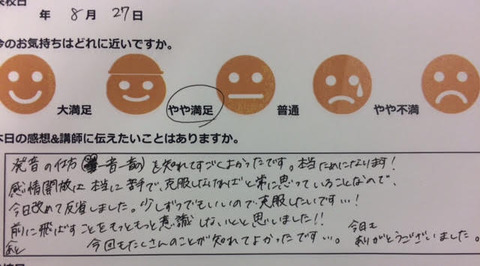 年 8月 27日
今のお気持ちはどれに近いですか。
大満足 やや満足 普通 やや不満
本日の感想&講師に伝えたいことはありますか。
発音の仕方(一音一音の)を知れてすごくよかったです。本当ためになります!
感情開放は本当に苦手で、克服しなければと常に思っていることなので、
今日改めて反省しました。少しずつでもいいので克服したいです…!
前に飛ばすことをもっともっと意識しないとと思いました!!
あと 今回もたくさんのことが知れてよかったです…。 今日も
ありがとうございました。